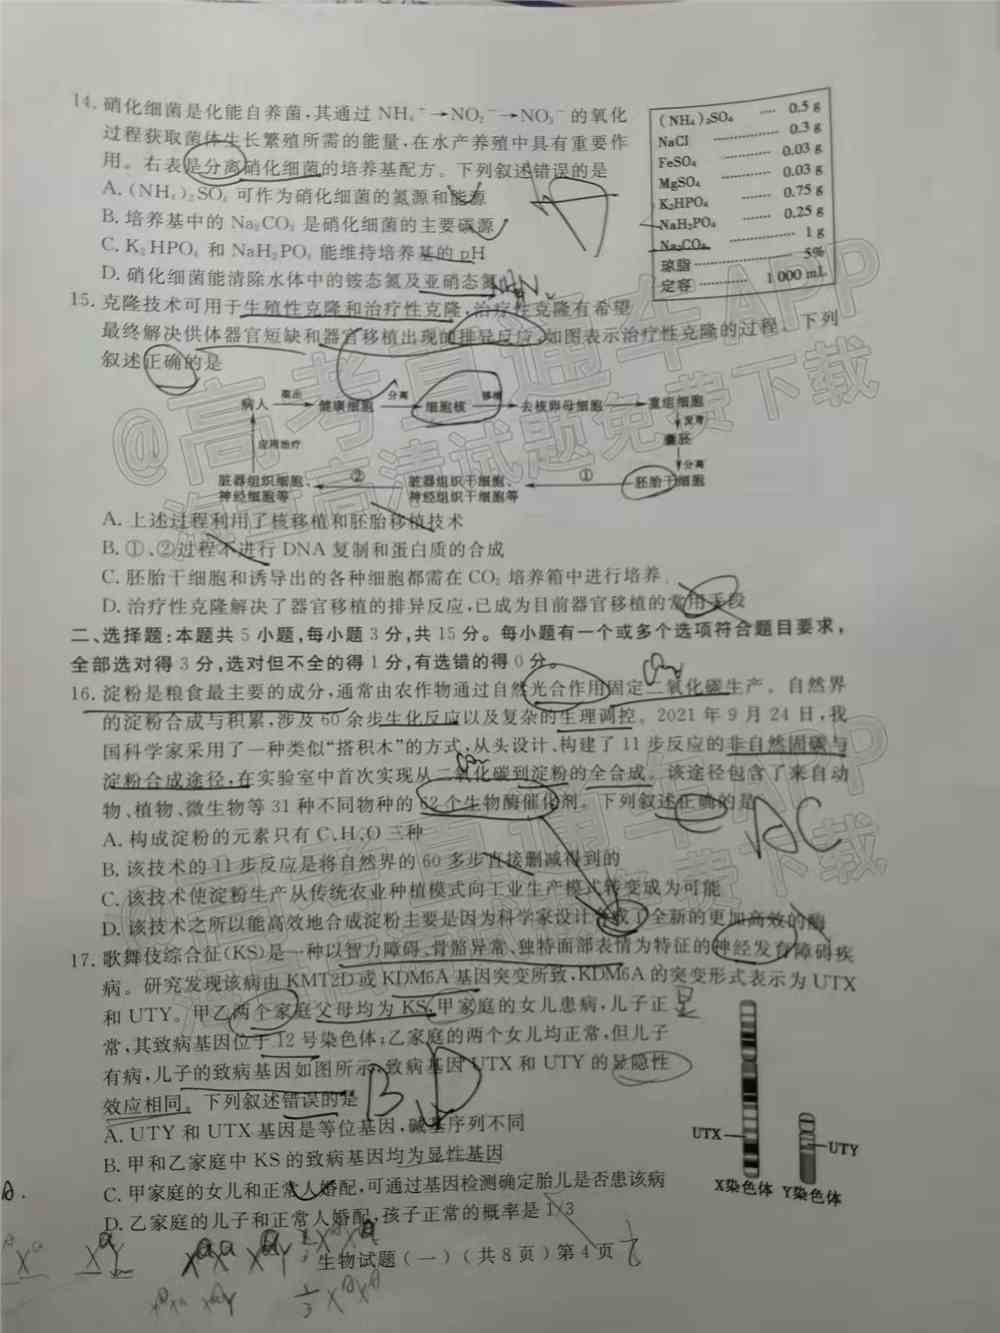 14. 硝化细菌是化能自养菌,其通过 NH₄⁺→NO₂⁻→NO₃⁻ 的氧化
过程获取菌体生长繁殖所需的能量,在水产养殖中具有重要作
用。右表是分离硝化细菌的培养基配方。下列叙述错误的是
A. (NH₄)₂SO₄ 可作为硝化细菌的氮源和能源
B. 培养基中的 Na₂CO₃ 是硝化细菌的主要碳源
C. K₂HPO₄ 和 NaH₂PO₄ 能维持培养基的 pH
D. 硝化细菌能清除水体中的铵态氮及亚硝态氮
(NH₄)₂SO₄ 0.5 g
NaCl 0.3 g
FeSO₄ 0.03 g
MgSO₄ 0.03 g
K₂HPO₄ 0.75 g
NaH₂PO₄ 0.25 g
Na₂CO₃ 1 g
琼脂 5%
定容 1 000 mL
15. 克隆技术可用于生殖性克隆和治疗性克隆,治疗性克隆有希望
最终解决供体器官短缺和器官移植出现的排异反应,如图表示治疗性克隆的过程。下列
叙述正确的是
病人 取出 健康细胞 分离 细胞核 移植 去核卵母细胞 重组细胞
发育
囊胚
应用治疗
分离
脏器组织细胞、神经细胞等 ② 脏器组织干细胞、神经组织干细胞等 ① 胚胎干细胞
A. 上述过程利用了核移植和胚胎移植技术
B. ①、②过程不进行 DNA 复制和蛋白质的合成
C. 胚胎干细胞和诱导出的各种细胞都需在 CO₂ 培养箱中进行培养
D. 治疗性克隆解决了器官移植的排异反应,已成为目前器官移植的常用手段
二、选择题:本题共 5 小题,每小题 3 分,共 15 分。每小题有一个或多个选项符合题目要求,
全部选对得 3 分,选对但不全的得 1 分,有选错的得 0 分。
16. 淀粉是粮食最主要的成分,通常由农作物通过自然光合作用固定二氧化碳生产。自然界
的淀粉合成与积累,涉及 60 余步生化反应以及复杂的生理调控。2021 年 9 月 24 日,我
国科学家采用了一种类似“搭积木”的方式,从头设计、构建了 11 步反应的非自然固碳与
淀粉合成途径,在实验室中首次实现从二氧化碳到淀粉的全合成。该途径包含了来自动
物、植物、微生物等 31 种不同物种的 62 个生物酶催化剂。下列叙述正确的是
AC
A. 构成淀粉的元素只有 C、H、O 三种
B. 该技术的 11 步反应是将自然界的 60 多步直接删减得到的
C. 该技术使淀粉生产从传统农业种植模式向工业生产模式转变成为可能
D. 该技术之所以能高效地合成淀粉主要是因为科学家设计合成了全新的更加高效的酶
17. 歌舞伎综合征(KS)是一种以智力障碍、骨骼异常、独特面部表情为特征的神经发育障碍疾
病。研究发现该病由 KMT2D 或 KDM6A 基因突变所致,KDM6A 的突变形式表示为 UTX
和 UTY。甲乙两个家庭父母均为 KS,甲家庭的女儿患病,儿子正
常,其致病基因位于 12 号染色体;乙家庭的两个女儿均正常,但儿子
有病,儿子的致病基因如图所示,致病基因 UTX 和 UTY 的显隐性
效应相同。下列叙述错误的是
BD
A. UTY 和 UTX 基因是等位基因,碱基序列不同
B. 甲和乙家庭中 KS 的致病基因均为显性基因
C. 甲家庭的女儿和正常人婚配,可通过基因检测确定胎儿是否患该病
D. 乙家庭的儿子和正常人婚配,孩子正常的概率是 1/3
UTX
UTY
X染色体 Y染色体
生物试题(一)(共 8 页)第 4 页
@高考直通车APP
海量高清试题免费下载
@高考直通车APP
海量高清试题免费下载